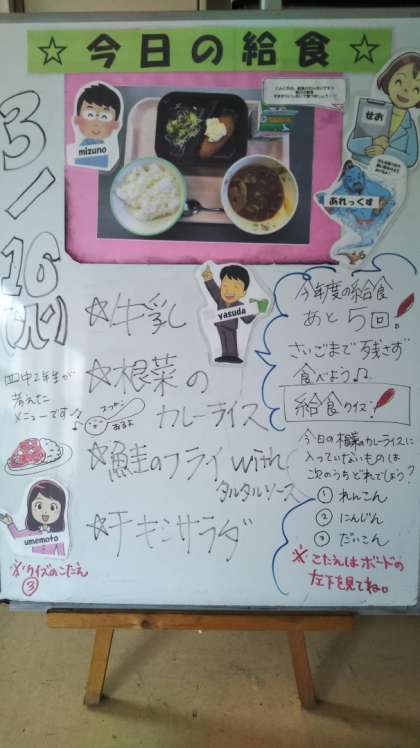 ☆今日の給食☆
3/16(火)
mizuno
せお
あれっくす
yasuda
☆牛乳
☆根菜の
カレーライス
スプーン
あるよ
☆鮭のフライwith
タルタルソース
☆チキンサラダ
四中2年生が
考えた
メニューです♪
umemoto
※クイズのこたえ
③
今年度の給食
あと5回!
さいごまで残さず
食べよう♪
給食クイズ!
今日の根菜のカレーライスに
入っていないものは
次のうちどれでしょう?
① れんこん
② にんじん
③ だいこん
※こたえはボードの
左下を見てね。